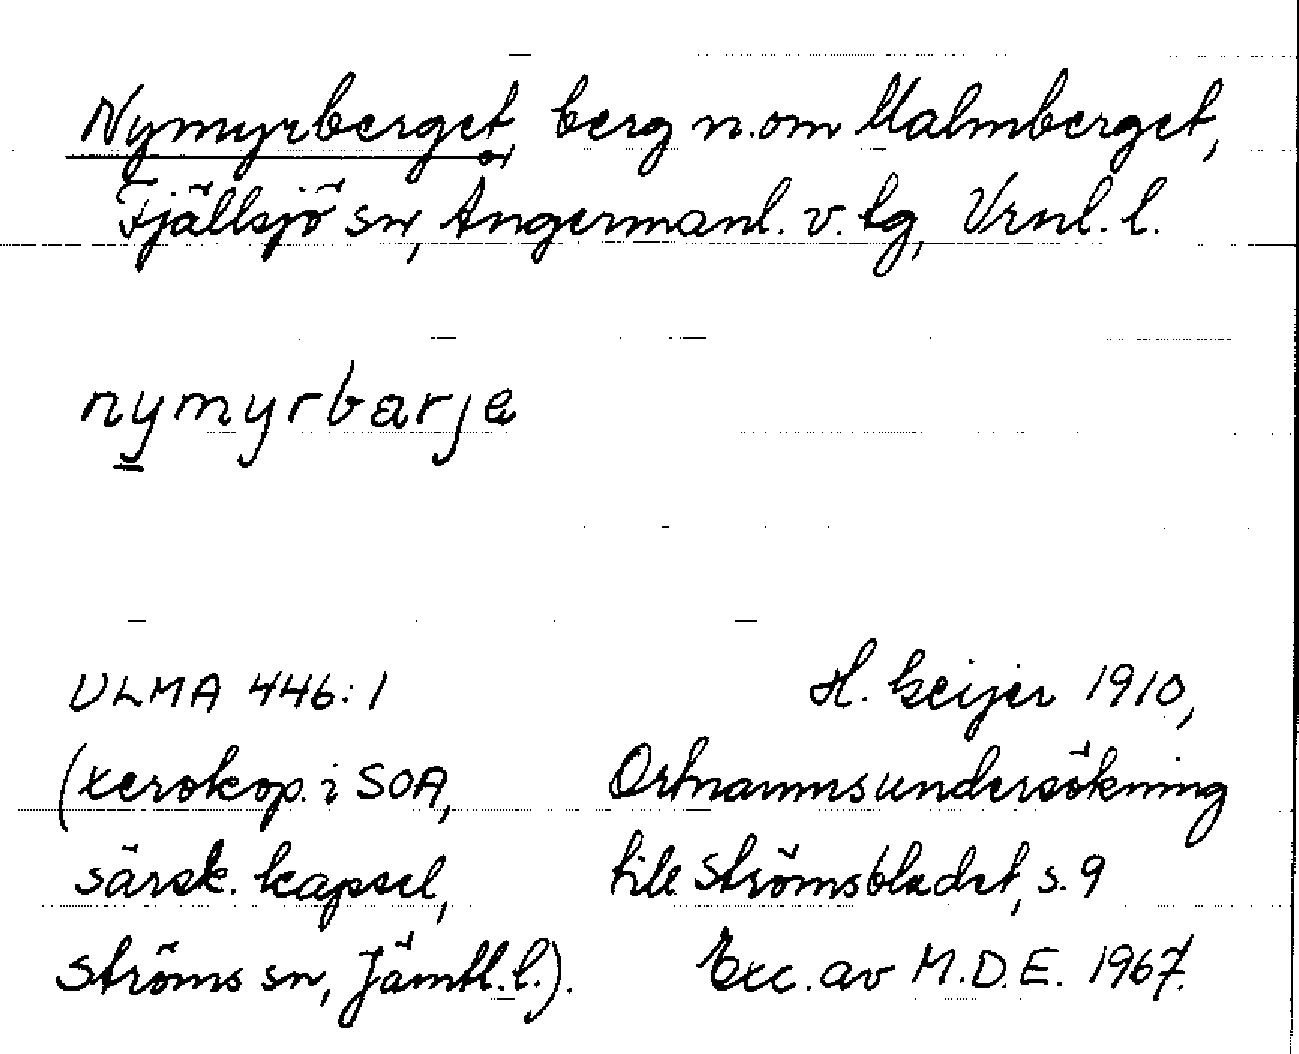 Nymyrberget, berg n.om Malmberget,
Fjällsjö sn, Ångermanl. v. tg, Vrnl. l.
nymyrbarje
ULMA 446:1
(xerokop. i SOA,
särsk. kapsel,
Ströms sn, Jämtl. l.).
H. Geijer 1910,
Ortnamnsundersökning
till Strömsbladet, s. 9
Exc. av M.D.E. 1967.